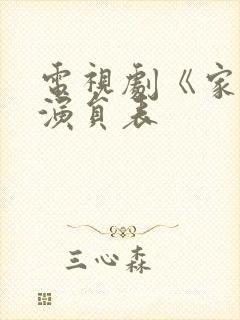 電視劇《家
演員表
三心森